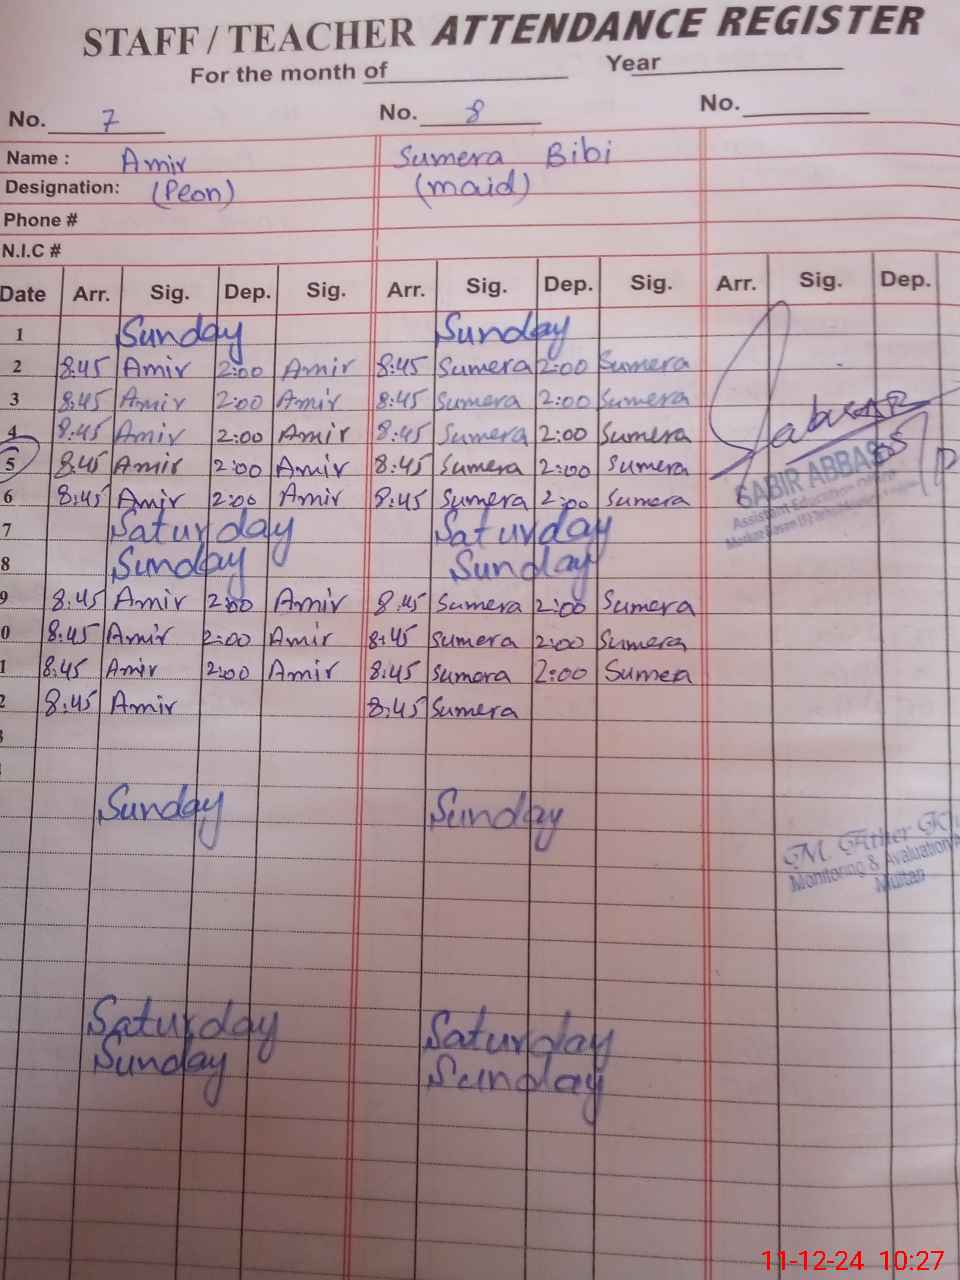 STAFF / TEACHER ATTENDANCE REGISTER
For the month of Year
No. 7 No. 8 No.
Name : Amir Sumera Bibi
Designation: (Peon) (maid)
Phone #
N.I.C #
Date Arr. Sig. Dep. Sig. Arr. Sig. Dep. Sig. Arr. Sig. Dep.
1 Sunday Sunday
2 8:45 Amir 2:00 Amir 8:45 Sumera 2:00 Sumera
3 8:45 Amir 2:00 Amir 8:45 Sumera 2:00 Sumera
4 8:45 Amir 2:00 Amir 8:45 Sumera 2:00 Sumera
5 8:45 Amir 2:00 Amir 8:45 Sumera 2:00 Sumera
SABIR ABBAS
6 8:45 Amir 2:00 Amir 8:45 Sumera 2:00 Sumera
Assistant Education
7 Saturday Saturday
8 Sunday Sunday
9 8:45 Amir 2:00 Amir 8:45 Sumera 2:00 Sumera
0 8:45 Amir 2:00 Amir 8:45 Sumera 2:00 Sumera
1 8:45 Amir 2:00 Amir 8:45 Sumera 2:00 Sumea
2 8:45 Amir 8:45 Sumera
Sunday Sunday
M. Ather
Monitoring & Evaluation
Multan
Saturday Saturday
Sunday Sunday
11-12-24 10:27